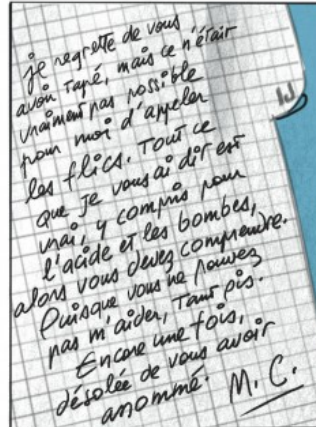 je regrette de vous
avoir tapé, mais ce n'était
vraiment pas possible
pour moi d'appeler
les flics. Tout ce
que je vous ai dit est
vrai, y compris pour
l'acide et les bombes,
alors vous devez comprendre.
Puisque vous ne pouvez
pas m'aider, tant pis.
Encore une fois,
désolée de vous avoir
assommé.
M. C.